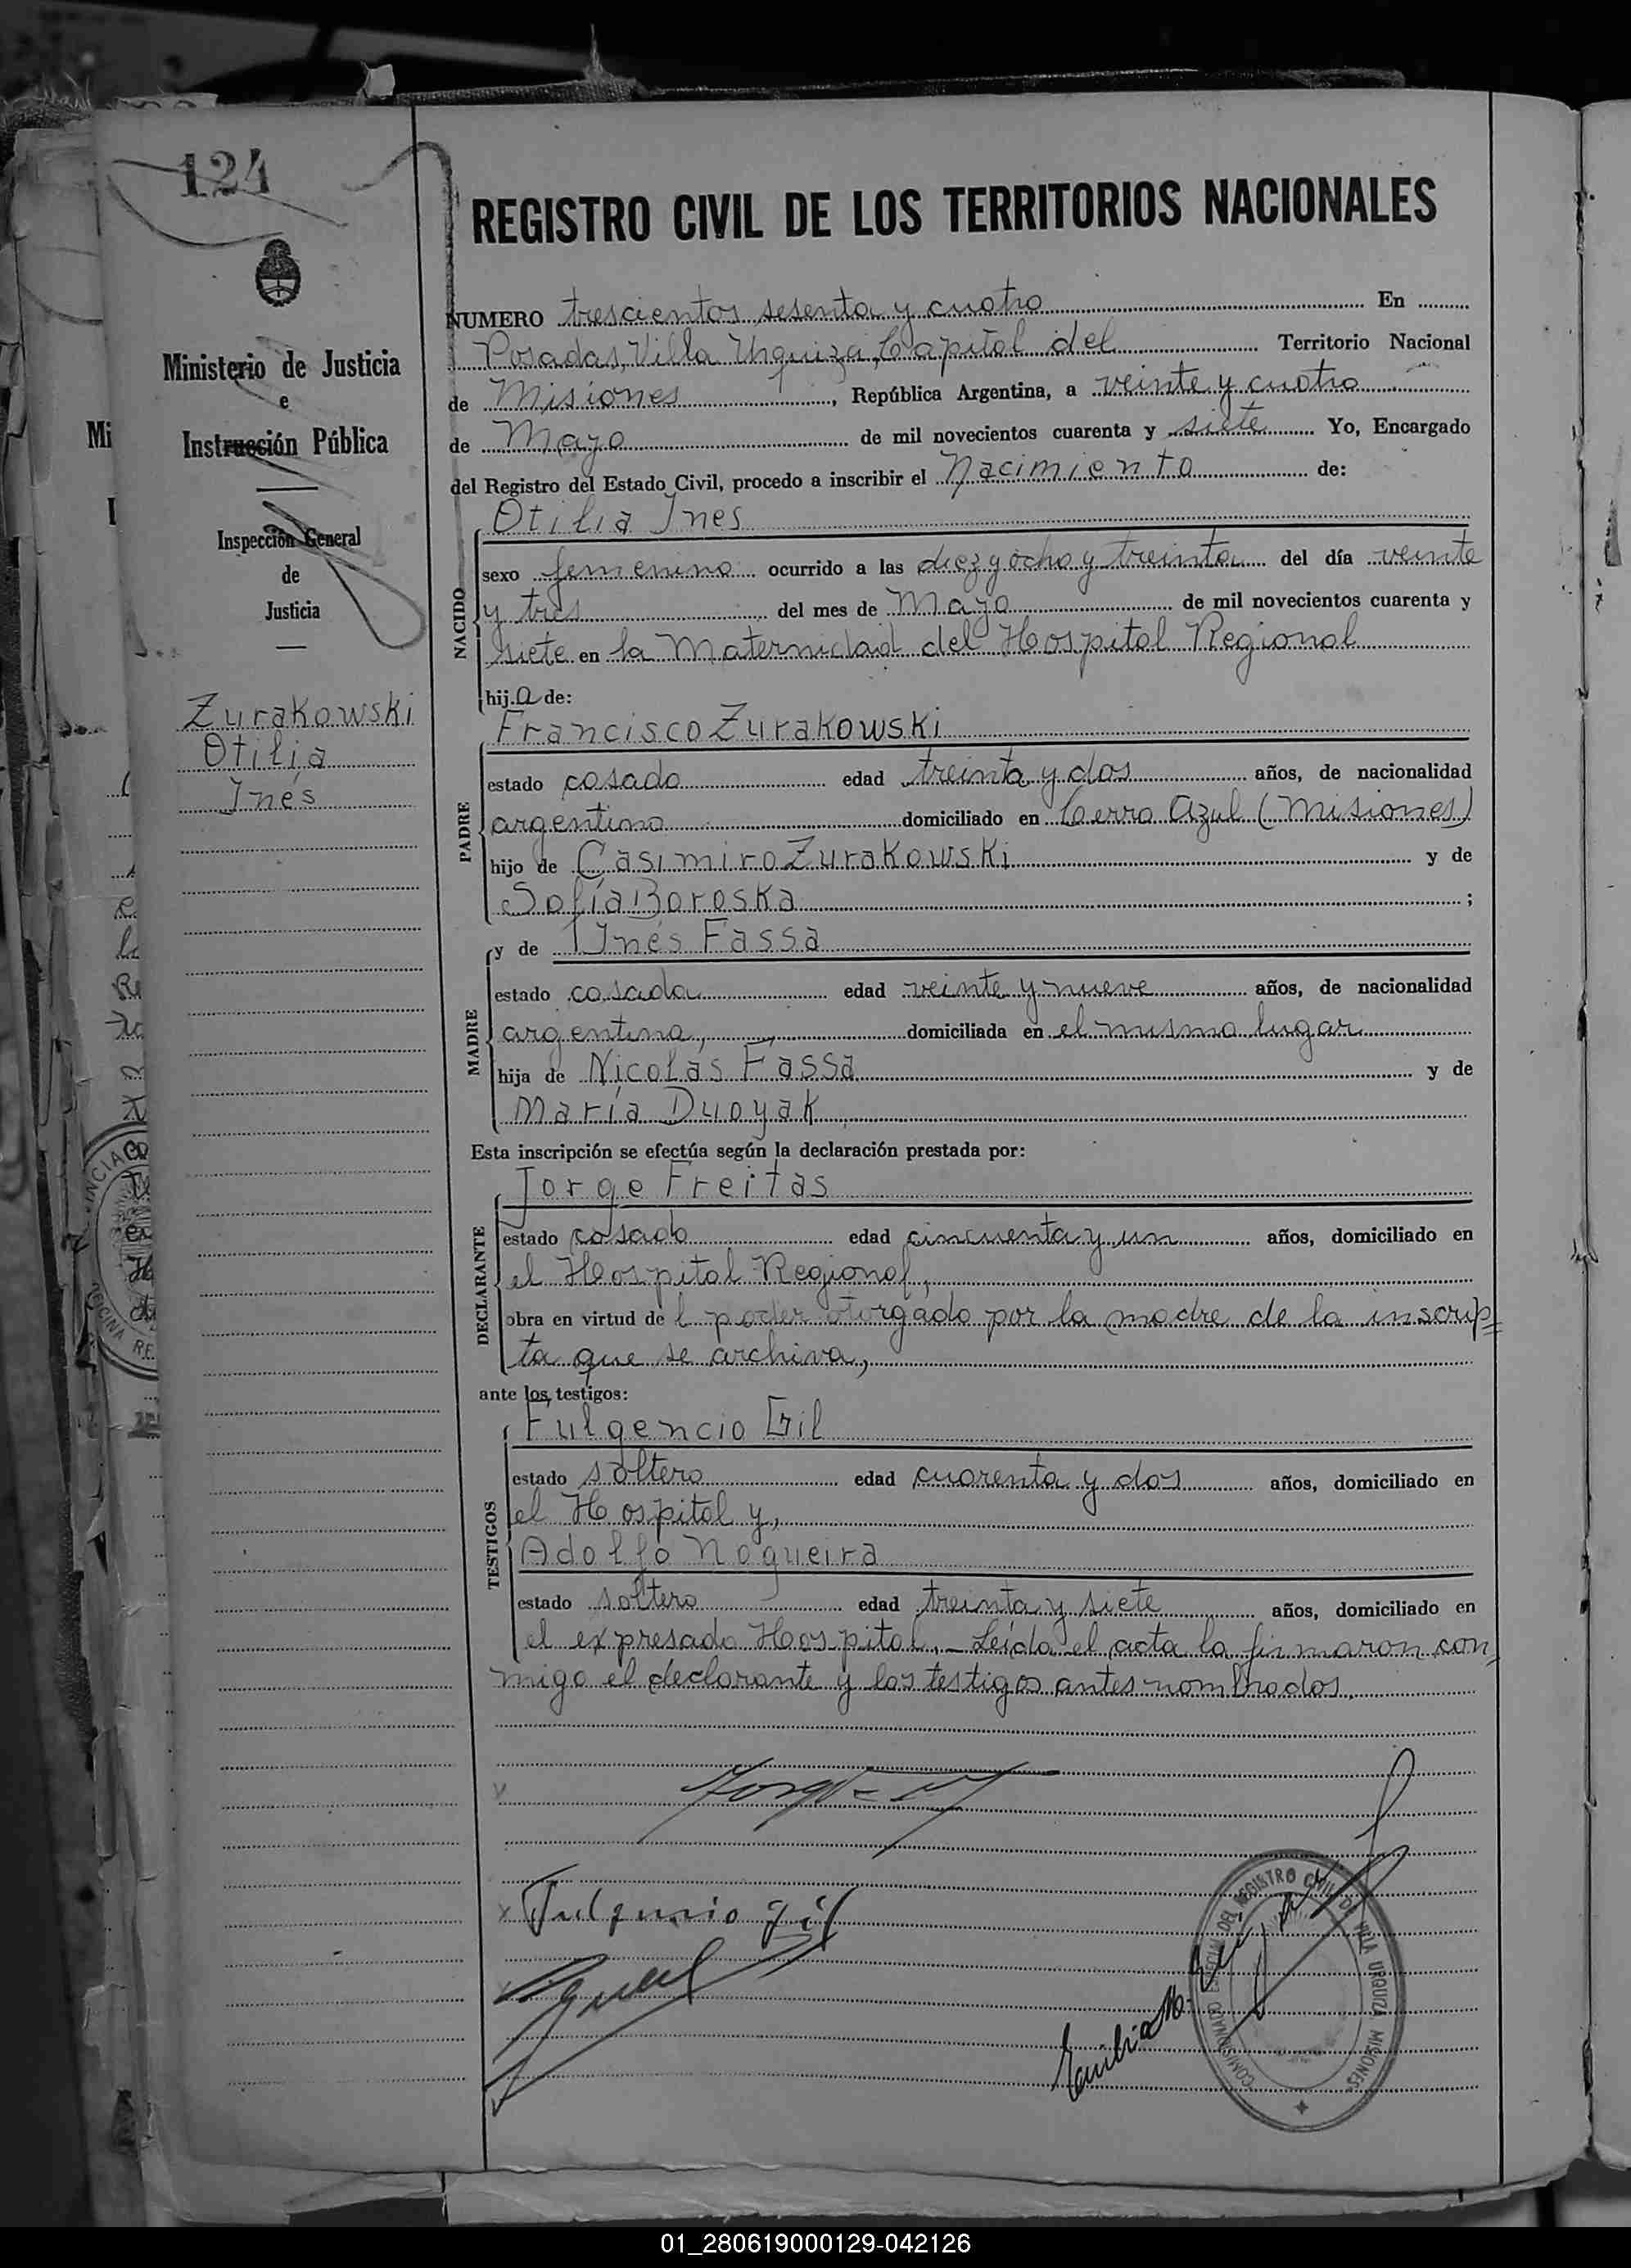 124
REGISTRO CIVIL DE LOS TERRITORIOS NACIONALES
Ministerio de Justicia
e
Instrucción Pública
Inspección General
de
Justicia
Zurakowski
Otilia
Inés
NUMERO trescientos sesenta y cuatro En
Posadas, Villa Urquiza, Capital del Territorio Nacional
de Misiones, República Argentina, a veinte y cuatro
de Mayo de mil novecientos cuarenta y siete Yo, Encargado
del Registro del Estado Civil, procedo a inscribir el Nacimiento de:
Otilia Ines
NACIDO
sexo femenino ocurrido a las diez y ocho y treinta del día veinte
y tres del mes de Mayo de mil novecientos cuarenta y
siete en la Maternidad del Hospital Regional
hija de:
Francisco Zurakowski
PADRE
estado casado edad treinta y dos años, de nacionalidad
argentino domiciliado en Cerro Azul (Misiones)
hijo de Casimiro Zurakowski y de
Sofía Boroska ;
y de Inés Fassa
MADRE
estado casada edad veinte y nueve años, de nacionalidad
argentina, domiciliada en el mismo lugar
hija de Nicolás Fassa y de
María Duoyak
Esta inscripción se efectúa según la declaración prestada por:
Jorge Freitas
DECLARANTE
estado casado edad cincuenta y un años, domiciliado en
el Hospital Regional,
obra en virtud de l poder otorgado por la madre de la inscrip=
ta que se archiva,
ante los testigos:
Fulgencio Gil
TESTIGOS
estado soltero edad cuarenta y dos años, domiciliado en
el Hospital y,
Adolfo Nogueira
estado soltero edad treinta y siete años, domiciliado en
el expresado Hospital.- Leída el acta la firmaron con
migo el declarante y los testigos antes nombrados.
Fulgencio Gil
COMISIONADO ESPECIAL DEL REGISTRO CIVIL DE VILLA URQUIZA MISIONES
01_280619000129-042126